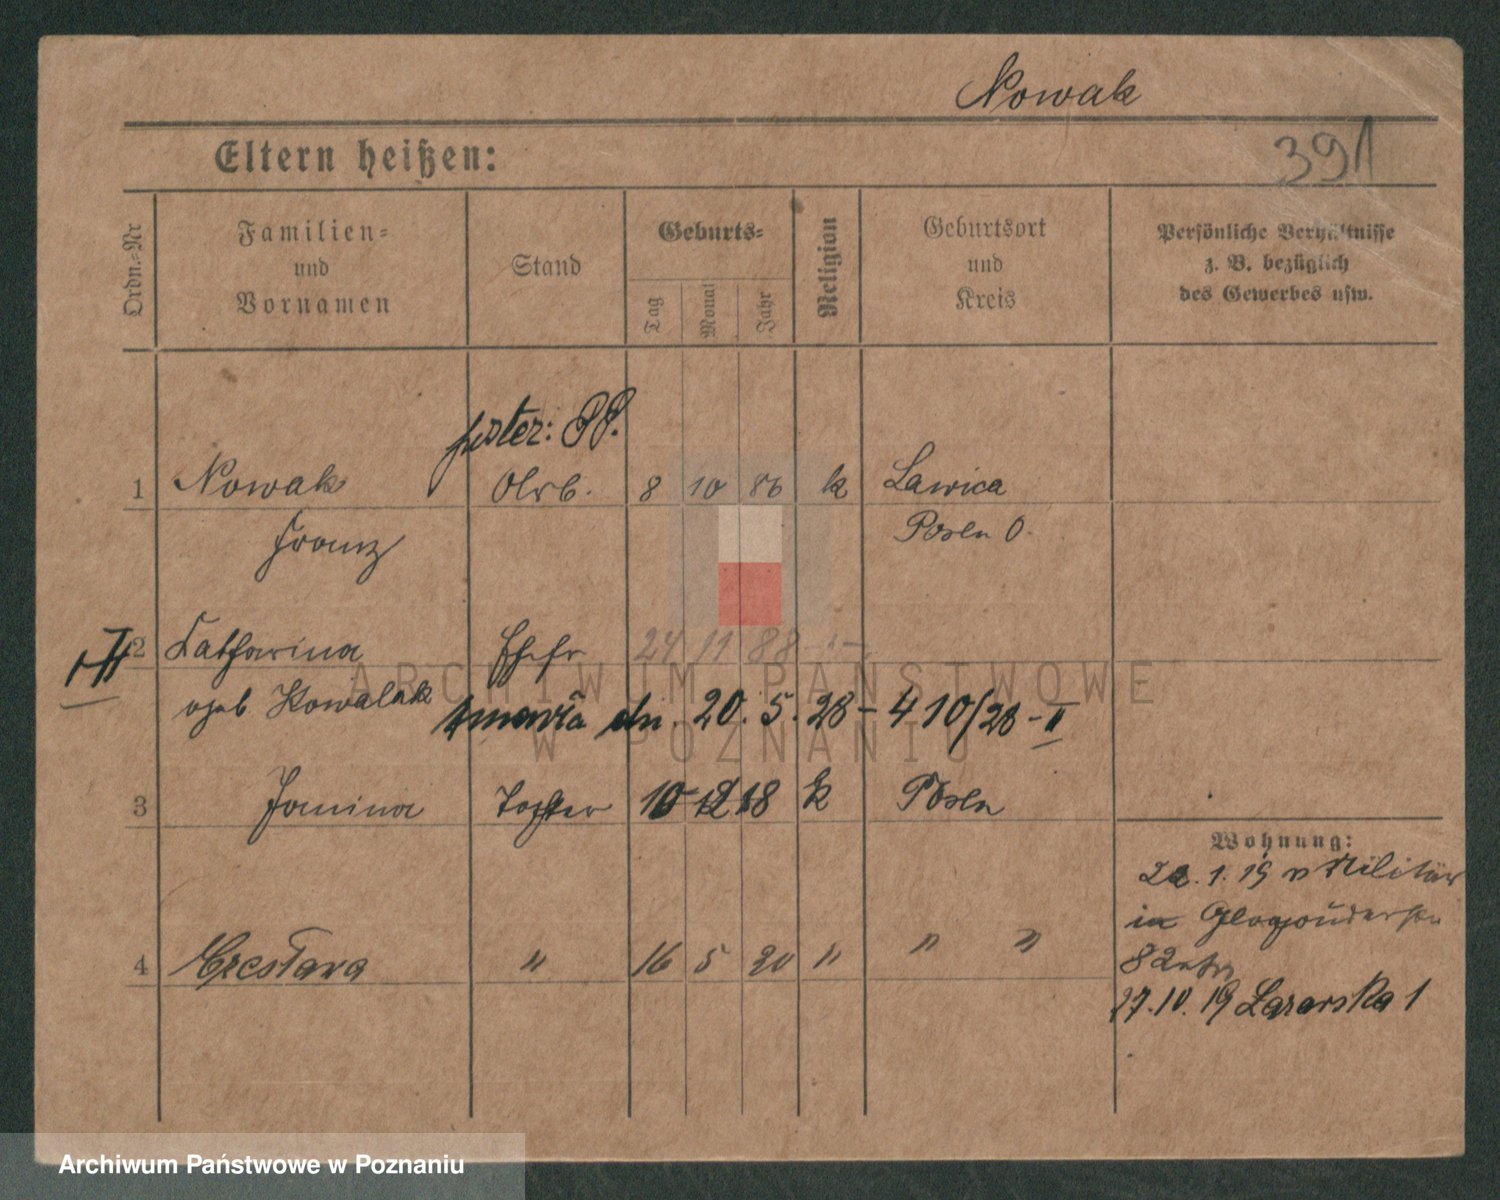 Nowak
391
Eltern heißen:
Ordn.-Nr
Familien-
und
Vornamen
Stand
Geburts-
Tag
Monat
Jahr
Religion
Geburtsort
und
Kreis
Persönliche Verhältnisse
z. B. bezüglich
des Gewerbes usw.
1 Nowak 8 10 86 k Lawica
Franz Posen O.
2 Catharina Ehefr 24 11 88
geb Kowalak
zmarła dn. 20. 5. 28 – 410/28 – II
3 Janina Tochter 10 12 18 k Posen
4 Czesława " 16 5 20 " " "
Wohnung:
22. 1. 19 v Militär
in
8
27. 10. 19 Lazarska 1
ARCHIWUM PAŃSTWOWE
W POZNANIU
Archiwum Państwowe w Poznaniu